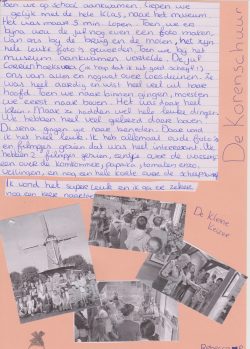 Toen we op school aankwamen, liepen we
gelijk met de hele klas, naar het museum.
Het was maar 5 min lopen. Toen we er
waren wou de juf nog even een foto maken.
Van ons bij de brug en de molen. Het zijn
hele leuke foto's geworden. Toen we bij het
museum aankwamen vertelde De juf
ons van alles en nog wat over Loosduinen. Ze
was heel aardig en wist heel veel uit haar
hoofd. Toen we naar binnen gingen, moesten
we eerst naar boven. Het was daar heel
klein. Maar ze hadden wel hele leuke dingen.
We hebben heel veel geleerd daar boven.
Daarna gingen we naar beneden. Daar vond
ik het heel leuk. Ik heb allemaal oude foto's
en filmpjes gezien dat was heel interessant. We
hebben 2 filmpjes gezien, eentje over de
over de komkommer, paprika, tomaten enzo.
veilingen, en nog een hele korte over de
Ik vond het super leuk en ik ga er zeker
nog een keer naartoe
De Korenschuur
De Kleine